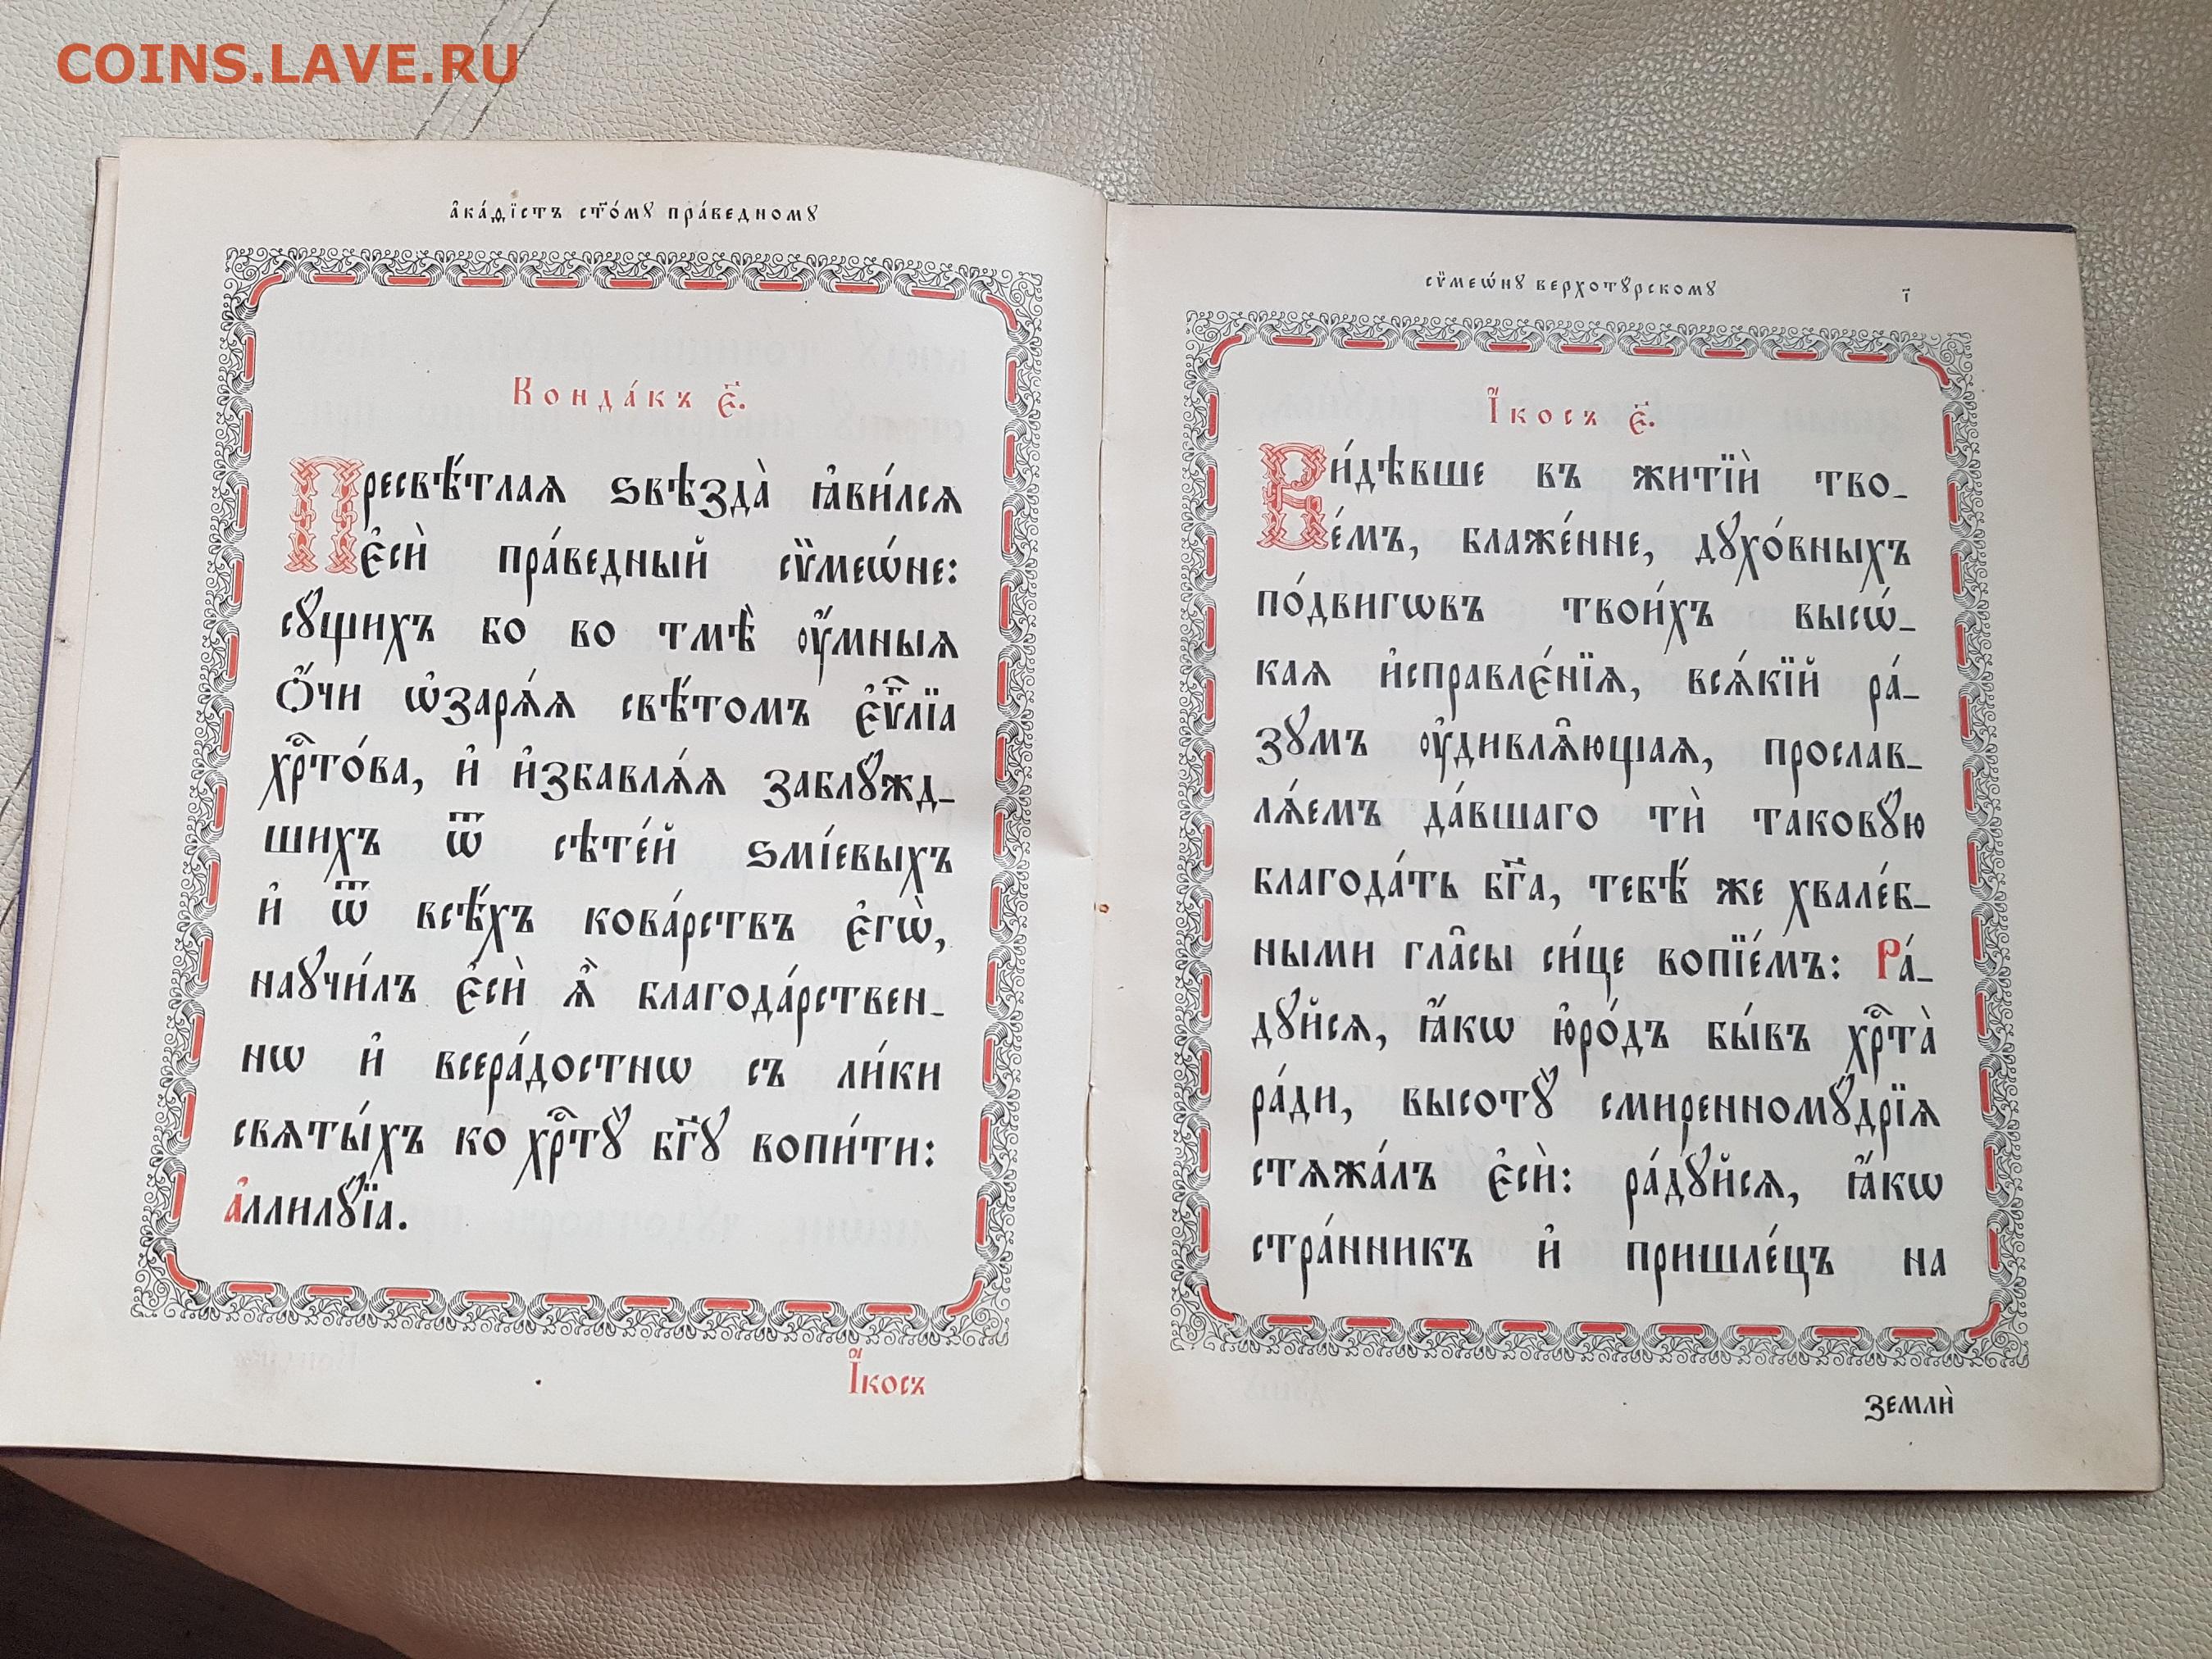 COINS.LAVE.RU
а҆ка́ѳїстъ ст҃о́мꙋ пра́ведномꙋ
Конда́къ є҃.
Пресвѣ́тлаѧ ѕвѣзда̀ ꙗ҆ви́лсѧ
є҆сѝ пра́ведный сѷмеѡ́не:
сꙋ́щихъ бо во тмѣ̀ ᲂу҆́мныѧ
ѻ҆́чи ѡ҆зарѧ́ѧ свѣ́томъ є҆ѵⷢ҇лїа
хрⷭ҇то́ва, и҆ и҆збавлѧ́ѧ заблꙋ́жд_
шихъ ѿ сѣте́й ѕмі́евыхъ
и҆ ѿ всѣ́хъ кова́рствъ є҆гѡ̀,
наꙋчи́лъ є҆сѝ ѧ҆̀ благода́рствен_
нѡ и҆ всера́достнѡ съ ли́ки
свѧты́хъ ко хрⷭ҇тꙋ̀ бг҃ꙋ вопи́ти:
а҆ллилꙋ́їа.
І҆́косъ
сѷмеѡ́нꙋ верхотꙋ́рскомꙋ
і҃
І҆́косъ є҃.
Ви́дѣвше въ житїѝ тво_
е́мъ, блаже́нне, дꙋхо́вныхъ
по́двигѡвъ твои́хъ высѡ́_
каѧ и҆справлє́нїѧ, всѧ́кїй ра́_
зꙋмъ ᲂу҆дивлѧ̑ющаѧ, прослав_
лѧ́емъ да́вшаго тѝ таковꙋ́ю
благода́ть бг҃а, тебѣ́ же хвале́б_
ными гла̑сы си́це вопїе́мъ: Ра́_
дꙋйсѧ, ꙗ҆́кѡ ю҆ро́дъ бы́въ хрⷭ҇та̀
ра́ди, высотꙋ̀ смиренномꙋ́дрїѧ
стѧжа́лъ є҆сѝ: ра́дꙋйсѧ, ꙗ҆́кѡ
стра́нникъ и҆ пришле́цъ на
землѝ